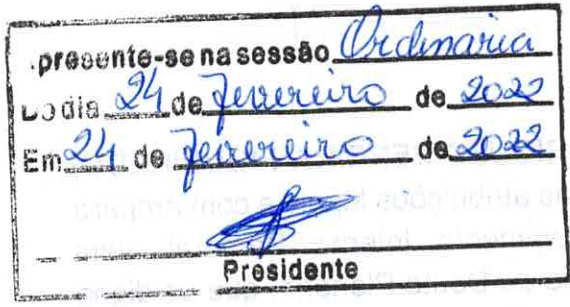 .presente-se na sessão Ordinaria
Do dia 24 de fevereiro de 2022
Em 24 de fevereiro de 2022
Presidente